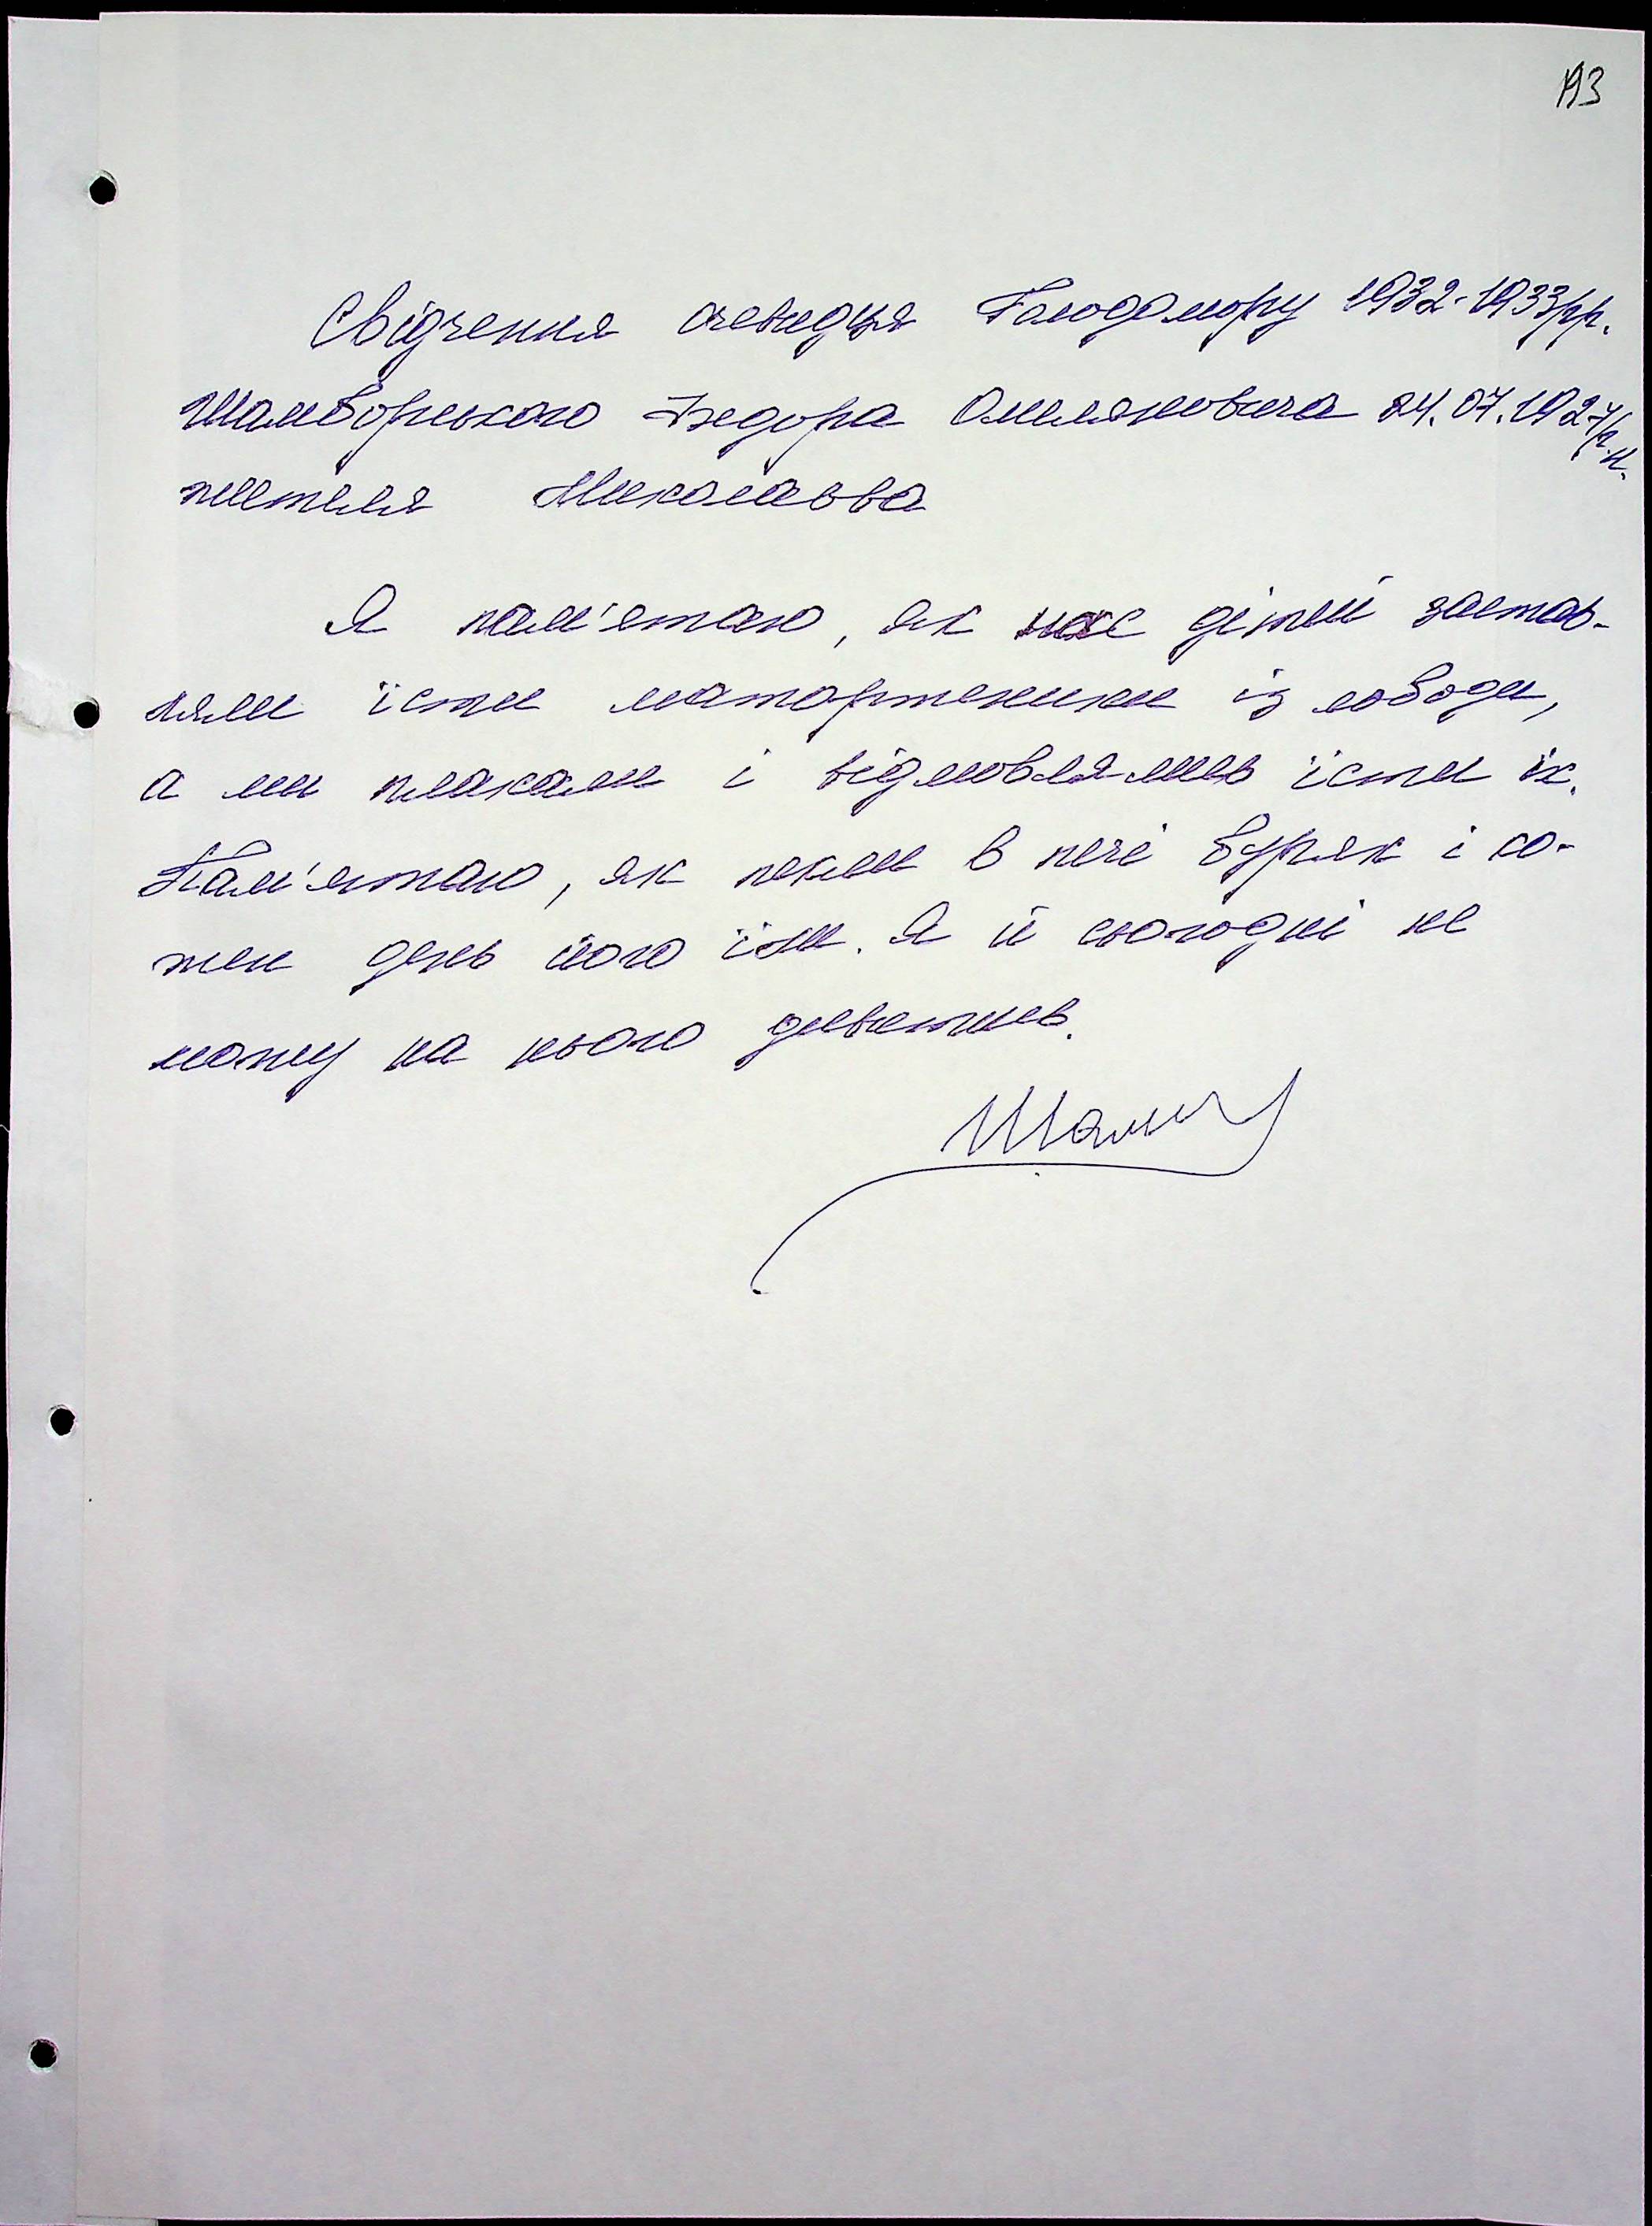 193
Свідчення очевидця Голодомору 1932-1933рр.
Шамборського Федора Омеляновича 24.07.1927р.н.
жителя Миколаєва
Я пам'ятаю, як нас дітей застав-
ляли їсти маторженики із лободи,
а ми плакали і відмовлялись їсти їх.
Пам'ятаю, як пекли в печі буряк і ко-
жен день його їли. Я й сьогодні не
можу на нього дивитись.